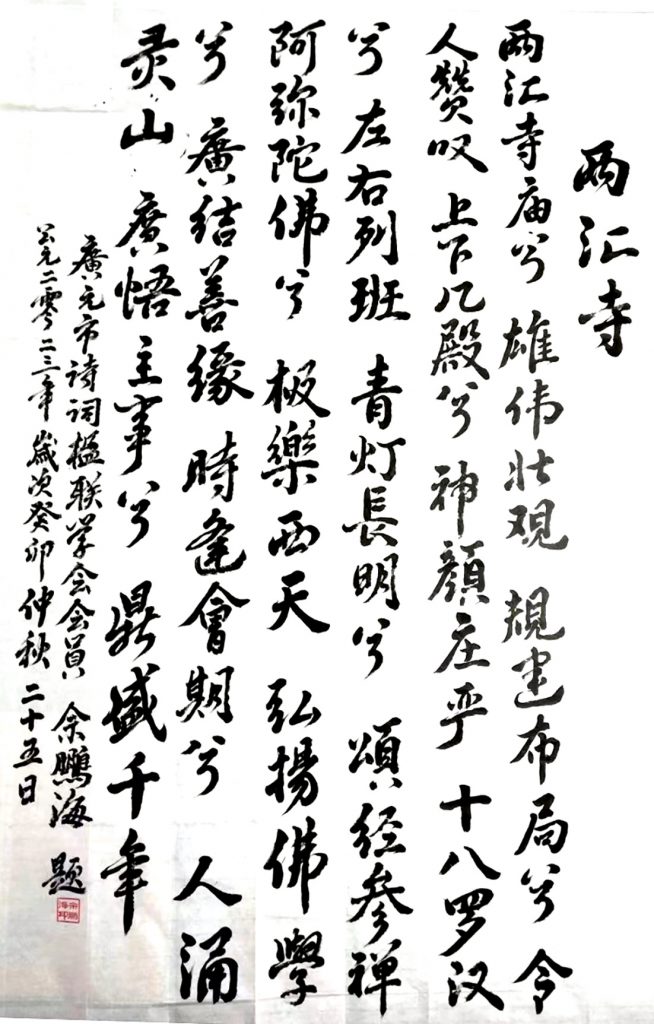 两汇寺
两汇寺庙兮 雄伟壮观 规建布局兮 令
人赞叹 上下几殿兮 神颜庄严 十八罗汉
兮 左右列班 青灯長明兮 颂经参禅
阿弥陀佛兮 极樂西天 弘揚佛學
兮 廣结善缘 時逢會期兮 人涌
灵山 廣悟主事兮 鼎盛千年
廣元市诗词楹联学会会員 余鹏海 题
公元二零二三年歲次癸卯仲秋二十五日